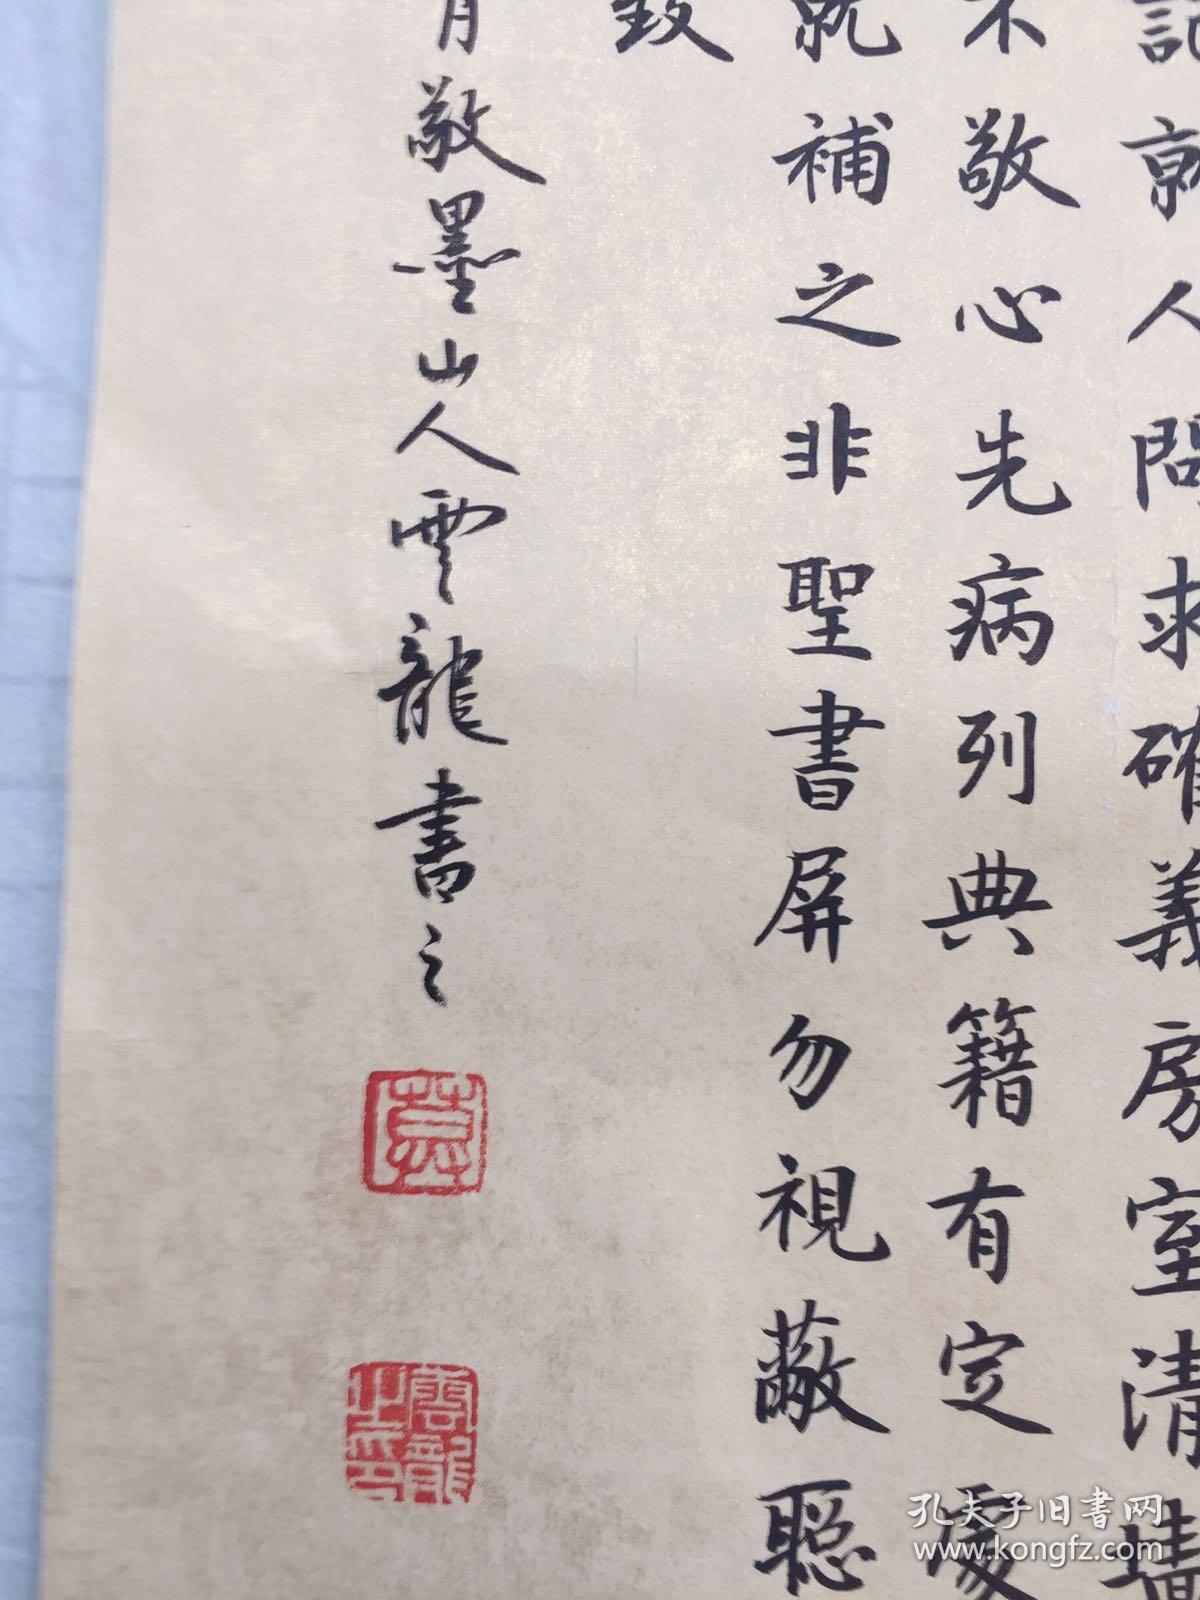 記就人問求確義房室清墻
不敬心先病列典籍有定處
就補之非聖書屏勿視蔽聰
致
月敬墨山人雲龍書之
雲龍之印
孔夫子旧书网
www.kongfz.com